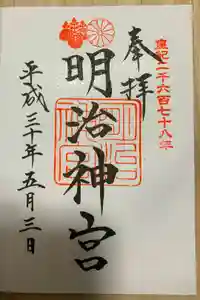 皇紀二千六百七十八年
奉拝
明治神宮
平成三十年五月三日